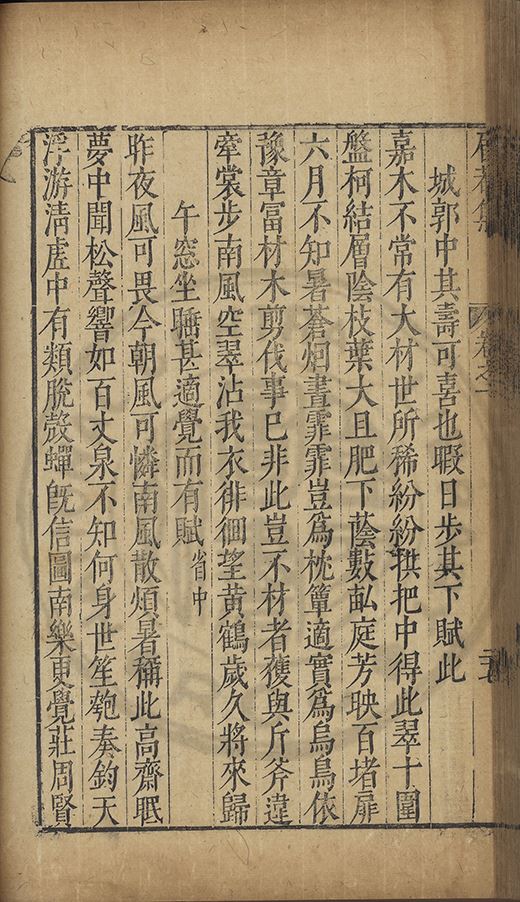 城郭中其壽可喜也暇日步其下賦此
嘉木不常有大材世所稀紛紛拱把中得此翠十圍
盤柯結層陰枝葉大且肥下蔭數畝庭芳映百堵扉
六月不知暑蒼烟晝霏霏豈爲枕簟適實爲烏鳥依
豫章冨材木剪伐事已非此豈不材者獲與斤斧違
牽裳步南風空翠沾我衣徘徊望黄鶴歲久將來歸
午窓坐睡甚適覺而有賦 省中
昨夜風可畏今朝風可憐南風散煩暑稱此高齋眠
夢中聞松聲響如百丈泉不知何身世笙匏奏鈞天
浮游清虛中有類脫殼蟬旣信圖南樂更覺莊周賢